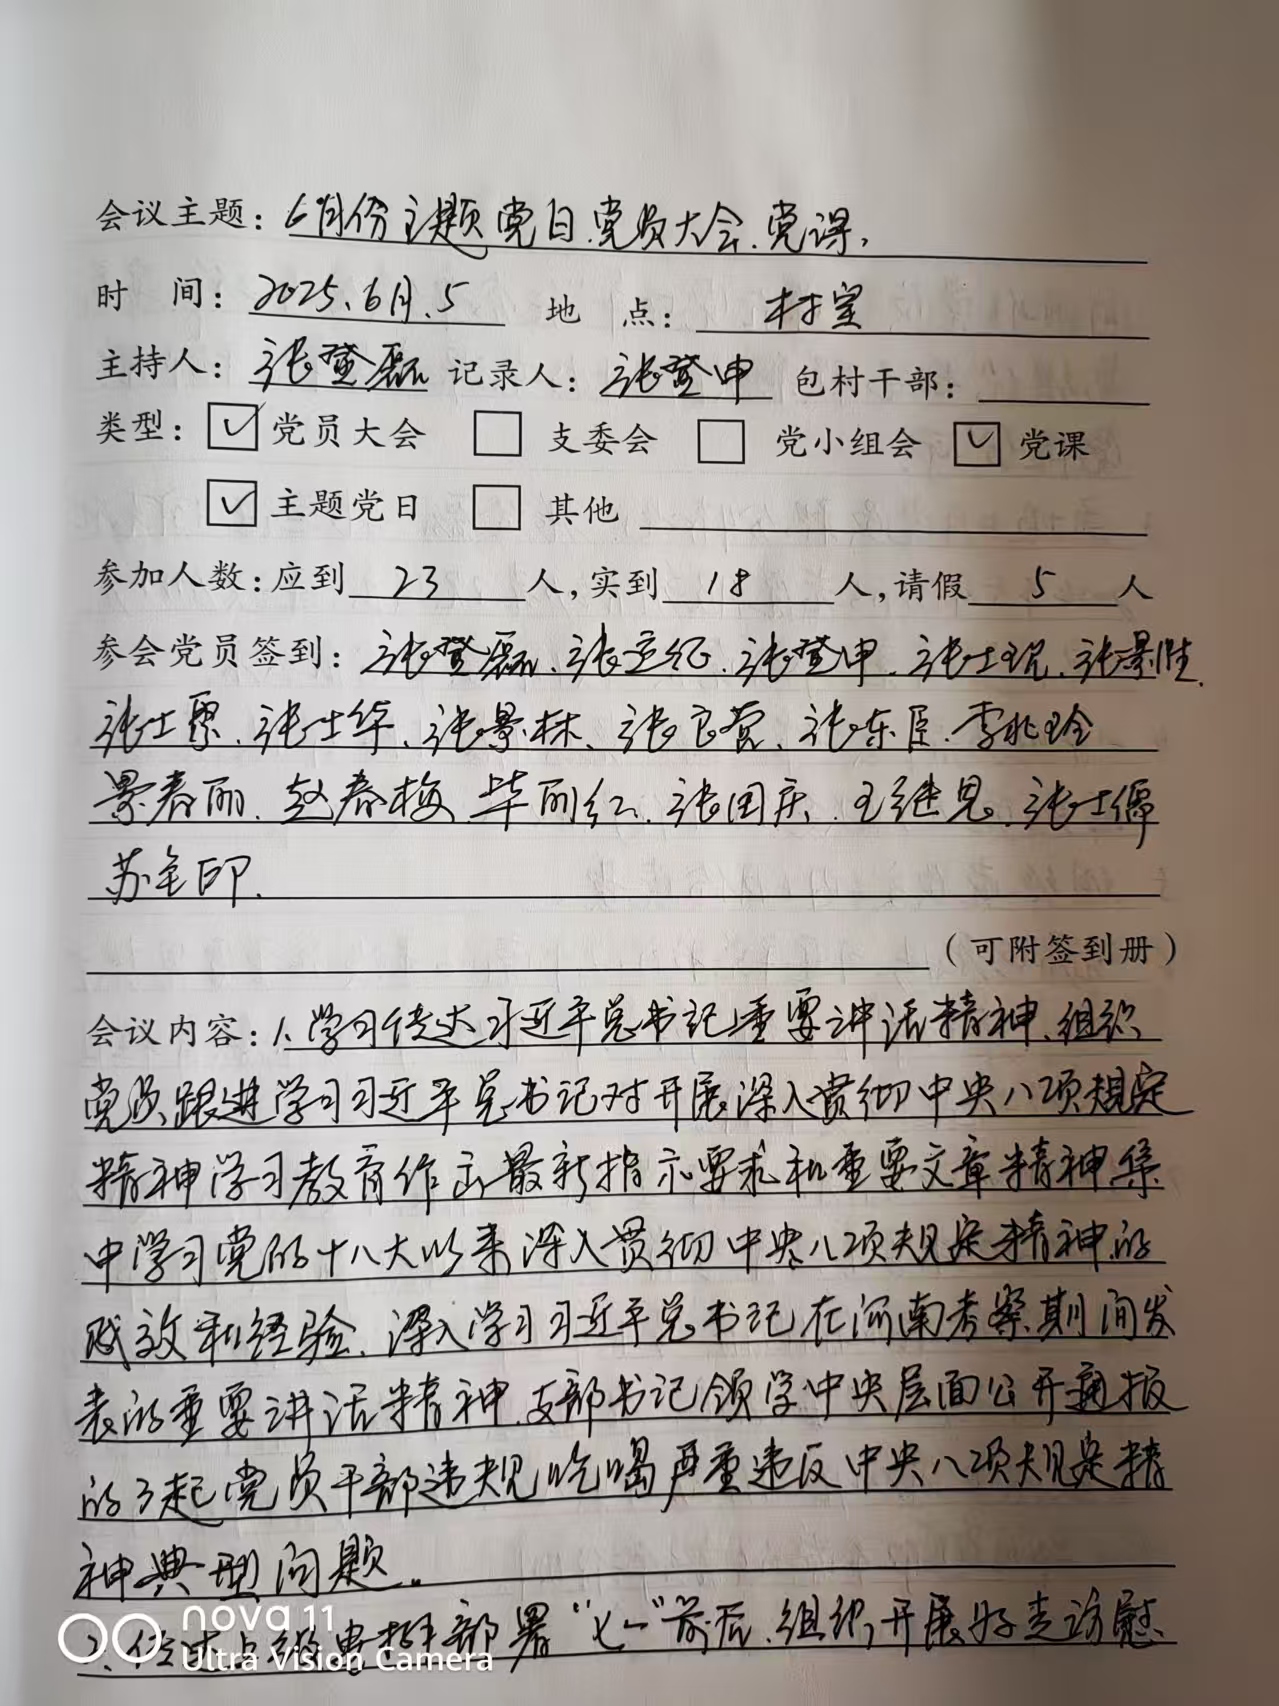 会议主题：6月份主题党日.党员大会.党课.
时 间：2025.6月.5 地 点：村室
主持人：张登磊 记录人：张登申 包村干部：
类型：☑党员大会 □支委会 □党小组会 ☑党课
☑主题党日 □其他
参加人数：应到23人，实到18人，请假5人
参会党员签到：张登磊、张立征、张登申、张士现、张景胜、
张士票、张士华、张景林、张良营、张东臣、李兆玲
景春丽、赵春梅、毕丽红、张国庆、王继恩、张士儒
苏全印.
（可附签到册）
会议内容：1.学习传达习近平总书记重要讲话精神、组织
党员跟进学习习近平总书记对开展深入贯彻中央八项规定
精神学习教育作出最新指示要求和重要文章精神集
中学习党的十八大以来深入贯彻中央八项规定精神的
成效和经验、深入学习习近平总书记在河南考察期间发
表的重要讲话精神.支部书记领学中央层面公开通报
的3起党员干部违规吃喝严重违反中央八项规定精
神典型问题.
2.传达上级 部署“七一”前后.组织开展好走访慰
nova 11
Ultra Vision Camera